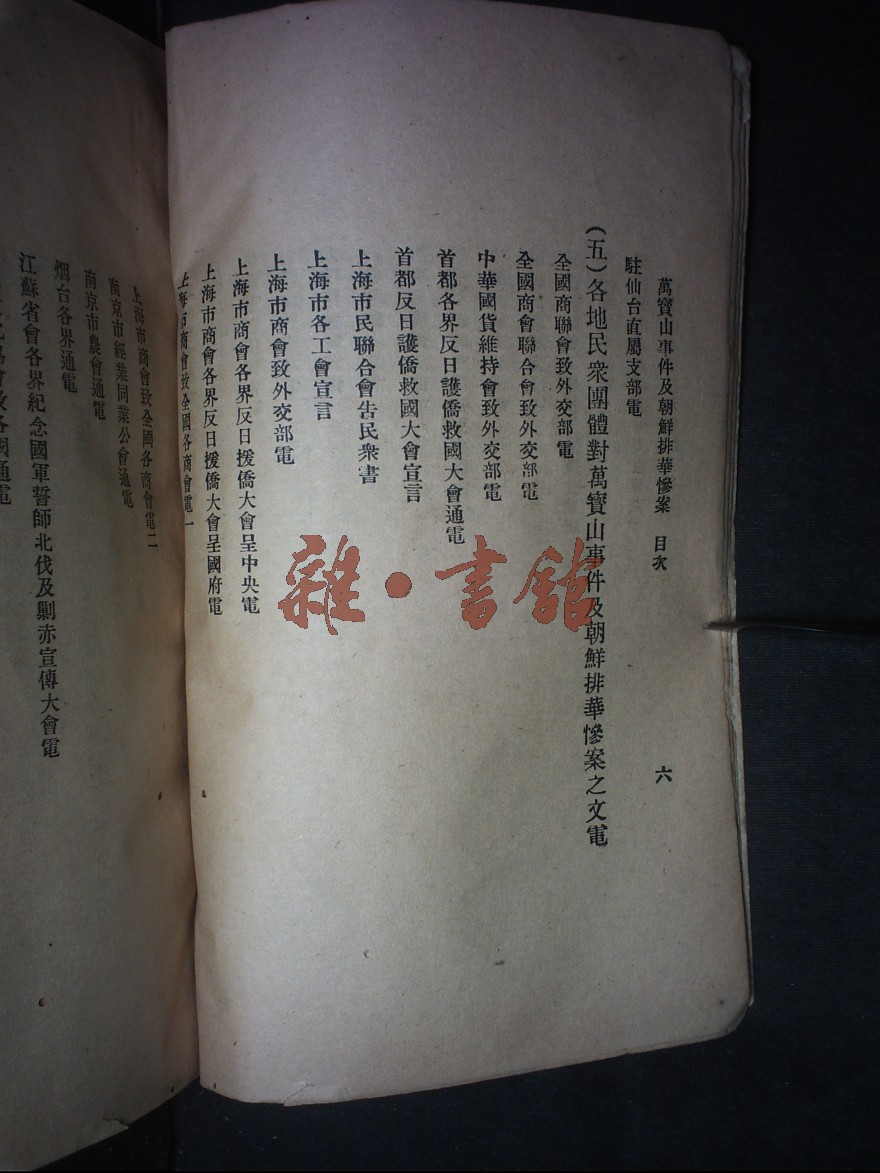 萬寳山事件及朝鮮排華慘案　目次　六
駐仙台直屬支部電
(五)各地民衆團體對萬寳山事件及朝鮮排華慘案之文電
全國商聯會致外交部電
全國商會聯合會致外交部電
中華國貨維持會致外交部電
首都各界反日護僑救國大會通電
首都反日護僑救國大會宣言
上海市民聯合會告民衆書
上海市各工會宣言
上海市商會致外交部電
上海市商會各界反日援僑大會呈中央電
上海市商會各界反日援僑大會呈國府電
上海市商會致全國各商會電一
上海市商會致全國各商會電二
南京市經業同業公會通電
南京市農會通電
烟台各界通電
江蘇省會各界紀念國軍誓師北伐及剿赤宣傳大會電
會致各國通電
雜·書館